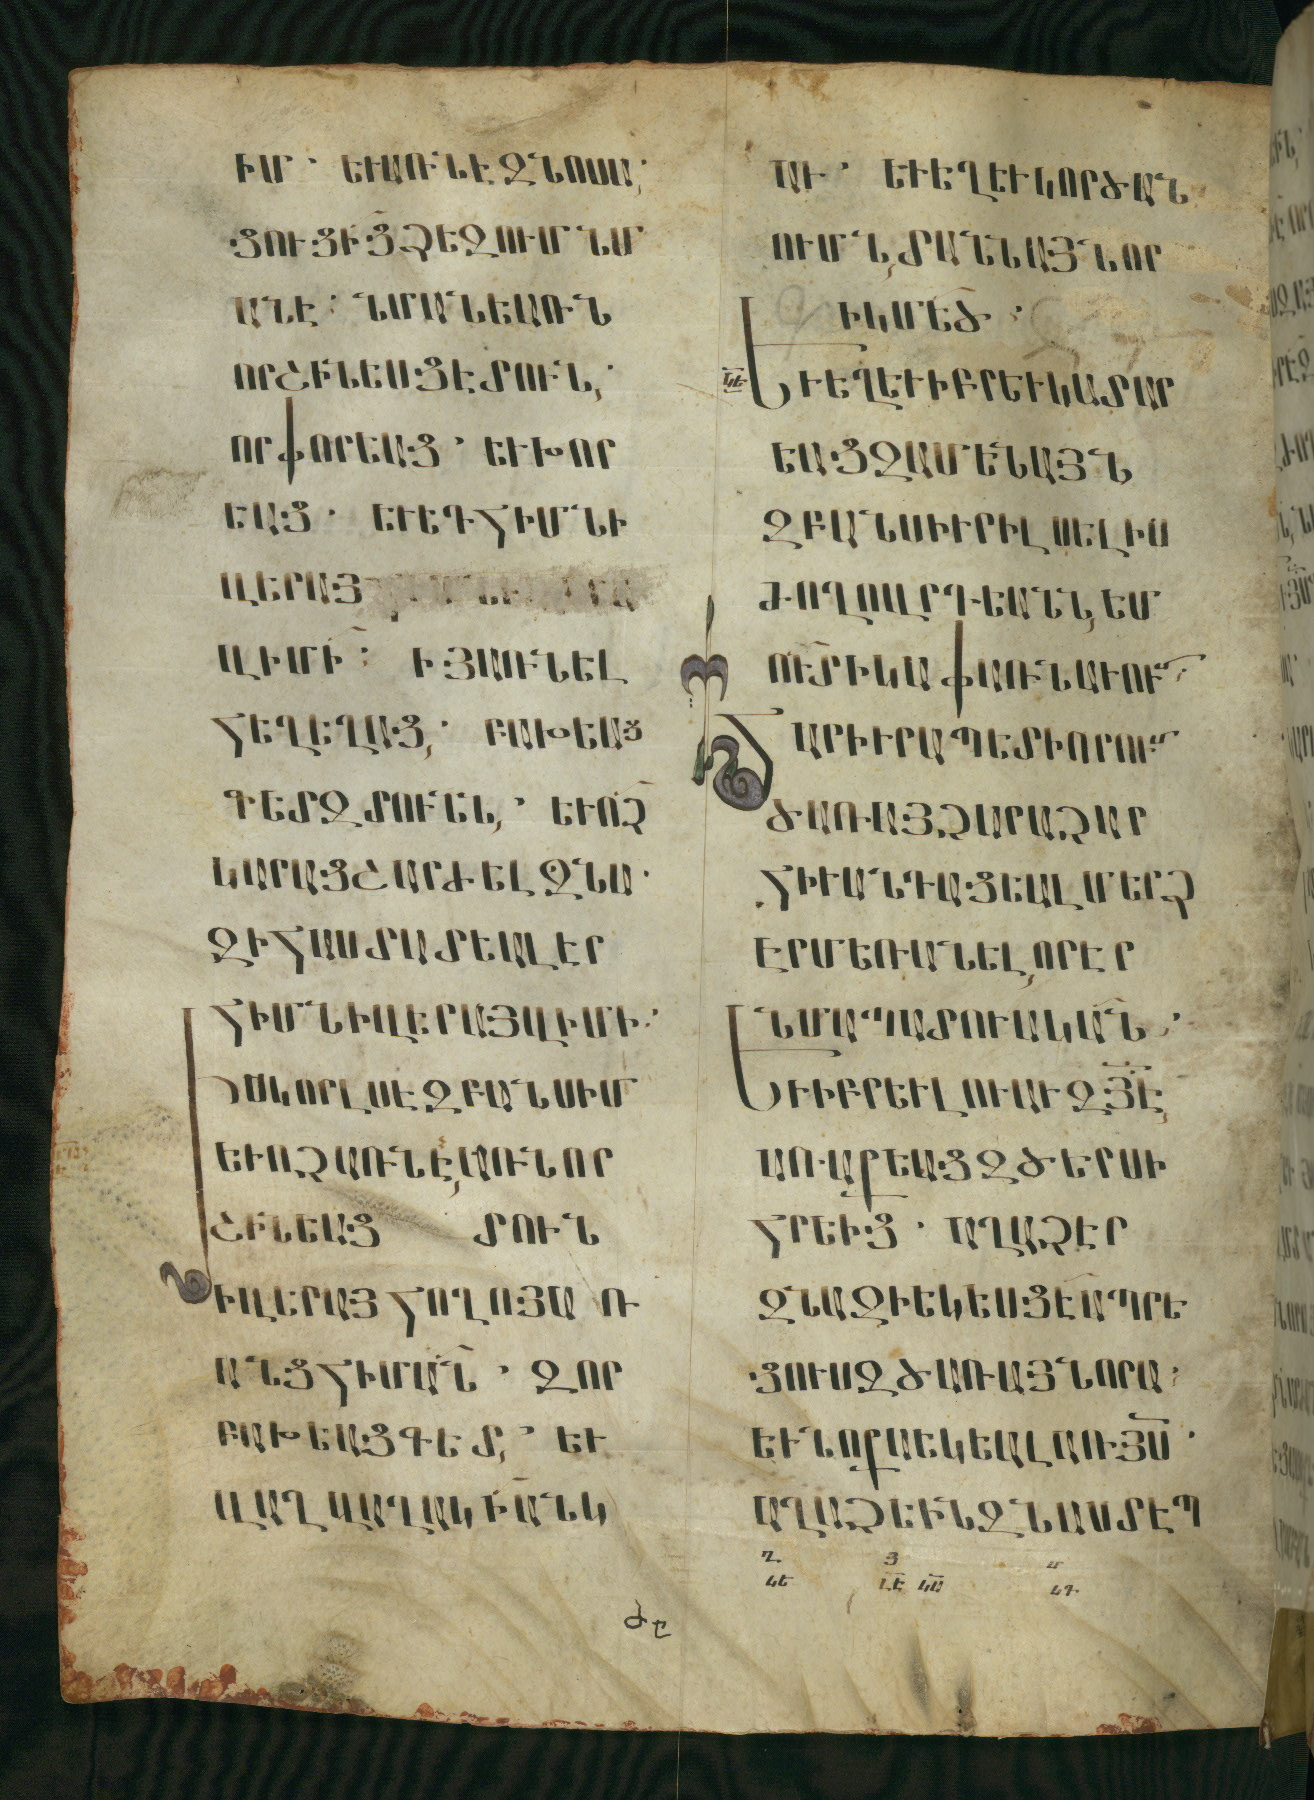 ԻՄ· ԵՒԱՌՆԷԶՆՈՍԱ·
ՑՈՒՑԻՑՁԵԶՈՒՄՆՄ
ԱՆԷ· ՆՄԱՆԵԱՌՆ
ՈՐՇԻՆԵՍՑԷՏՈՒՆ,·
ՈՐՓՈՐԵԱՑ· ԵՒԽՈՐ
ԵԱՑ· ԵՒԵԴՀԻՄՆԻ
ՎԵՐԱՅ
ՎԻՄԻ· ԻՅԱՌՆԵԼ
ՀԵՂԵՂԱՑ,· ԲԱԽԵԱՑ
ԳԵՏԶՏՈՒՆՆ,· ԵՒՈՉ
ԿԱՐԱՑՇԱՐԺԵԼԶՆԱ·
ԶԻՀԱՍՏԱՏԵԱԼԷՐ
ՀԻՄՆԻՎԵՐԱՅՎԻՄԻ·
ԻՍԿՈՐԼՍԷԶԲԱՆՍԻՄ
ԵՒՈՉԱՌՆԷ,ԱՌՆՈՐ
ՇԻՆԵԱՑ ՏՈՒՆ
ԻՎԵՐԱՅՀՈՂՈՅԱՌ
ԱՆՑՀԻՄԱՆ· ԶՈՐ
ԲԱԽԵԱՑԳԵՏ,· ԵՒ
ՎԱՂՎԱՂԱԿԻԱՆԿ
ԱՒ· ԵՒԵՂԵՒԿՈՐԾԱՆ
ՈՒՄՆ,ՏԱՆՆԱՅՆՈՐ
ԻԿՄԵԾ·
ԿԵ
ԵՒԵՂԵՒԻԲՐԵՒԿԱՏԱՐ
ԵԱՑԶԱՄԵՆԱՅՆ
ԶԲԱՆՍԻՒՐԻԼՍԵԼԻՍ
ԺՈՂՈՎՐԴԵԱՆՆ,ԵՄ
ՈՒՏԻԿԱՓԱՌՆԱՒՈՒՄ·
ՀԱՐԻՒՐԱՊԵՏԻՈՐՈՒՄ
ԾԱՌԱՅՉԱՐԱՉԱՐ
ՀԻՒԱՆԴԱՑԵԱԼՄԵՐՁ
ԷՐՄԵՌԱՆԵԼ,ՈՐԷՐ
ՆՄԱՊԱՏՈՒԱԿԱՆ·
ԵՒԻԲՐԵՒԼՈՒԱՒԶՅԷ,
ԱՌԱՔԵԱՑԶԾԵՐՍԻ
ՀՐԵԻՑ· ԱՂԱՉԷՐ
ԶՆԱԶԻԵԿԵՍՑԷԱՊՐԵ
ՑՈՒՍԶԾԱՌԱՅՆՈՐԱ·
ԵՒՆՈՔԱԵԿԵԱԼԱՌՅՍ·
ԱՂԱՉԵԻՆԶՆԱՍՏԷՊ
Ղ Յ Մ
ԿԵ ԼԷ ԿԱ ԿԴ